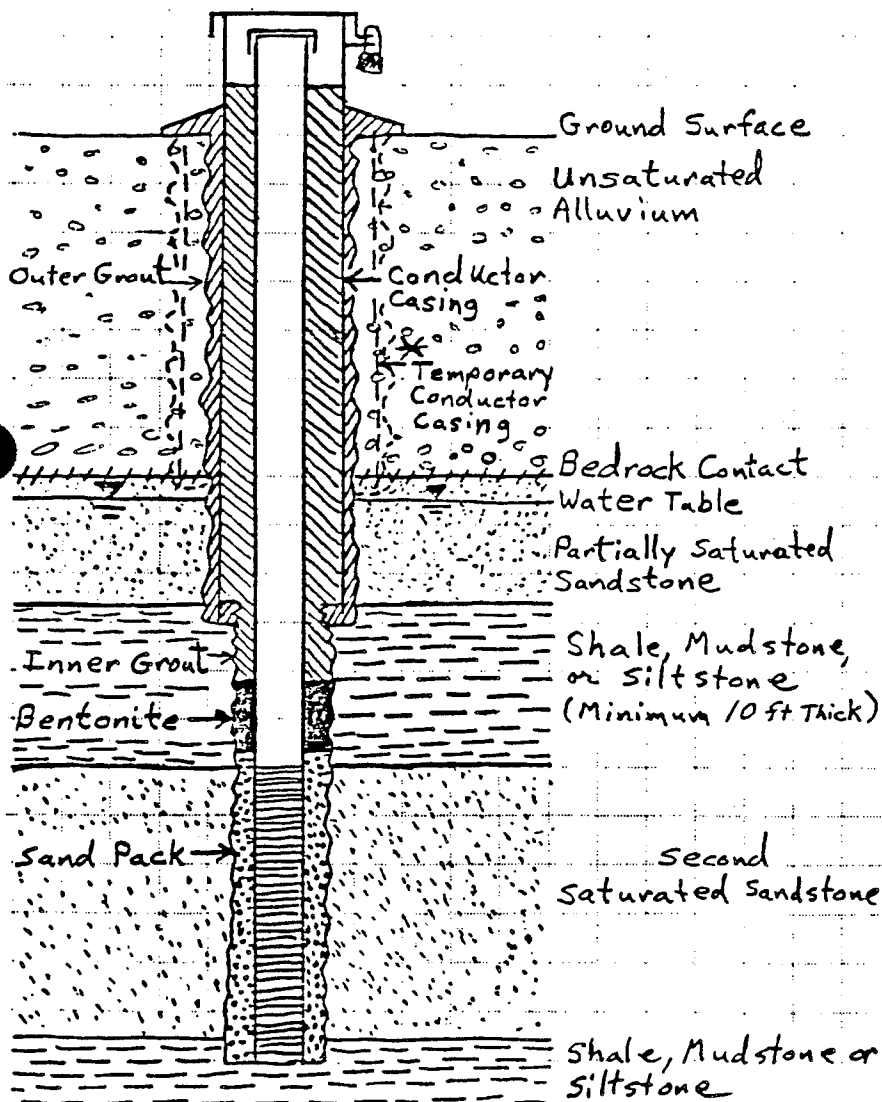 Ground Surface
Unsaturated
Alluvium
Outer Grout
Conductor
Casing
*
Temporary
Conductor
Casing
Bedrock Contact
Water Table
Partially Saturated
Sandstone
Inner Grout
Shale, Mudstone,
or Siltstone
(Minimum 10 ft Thick)
Bentonite
Sand Pack
Second
Saturated Sandstone
Shale, Mudstone or
Siltstone